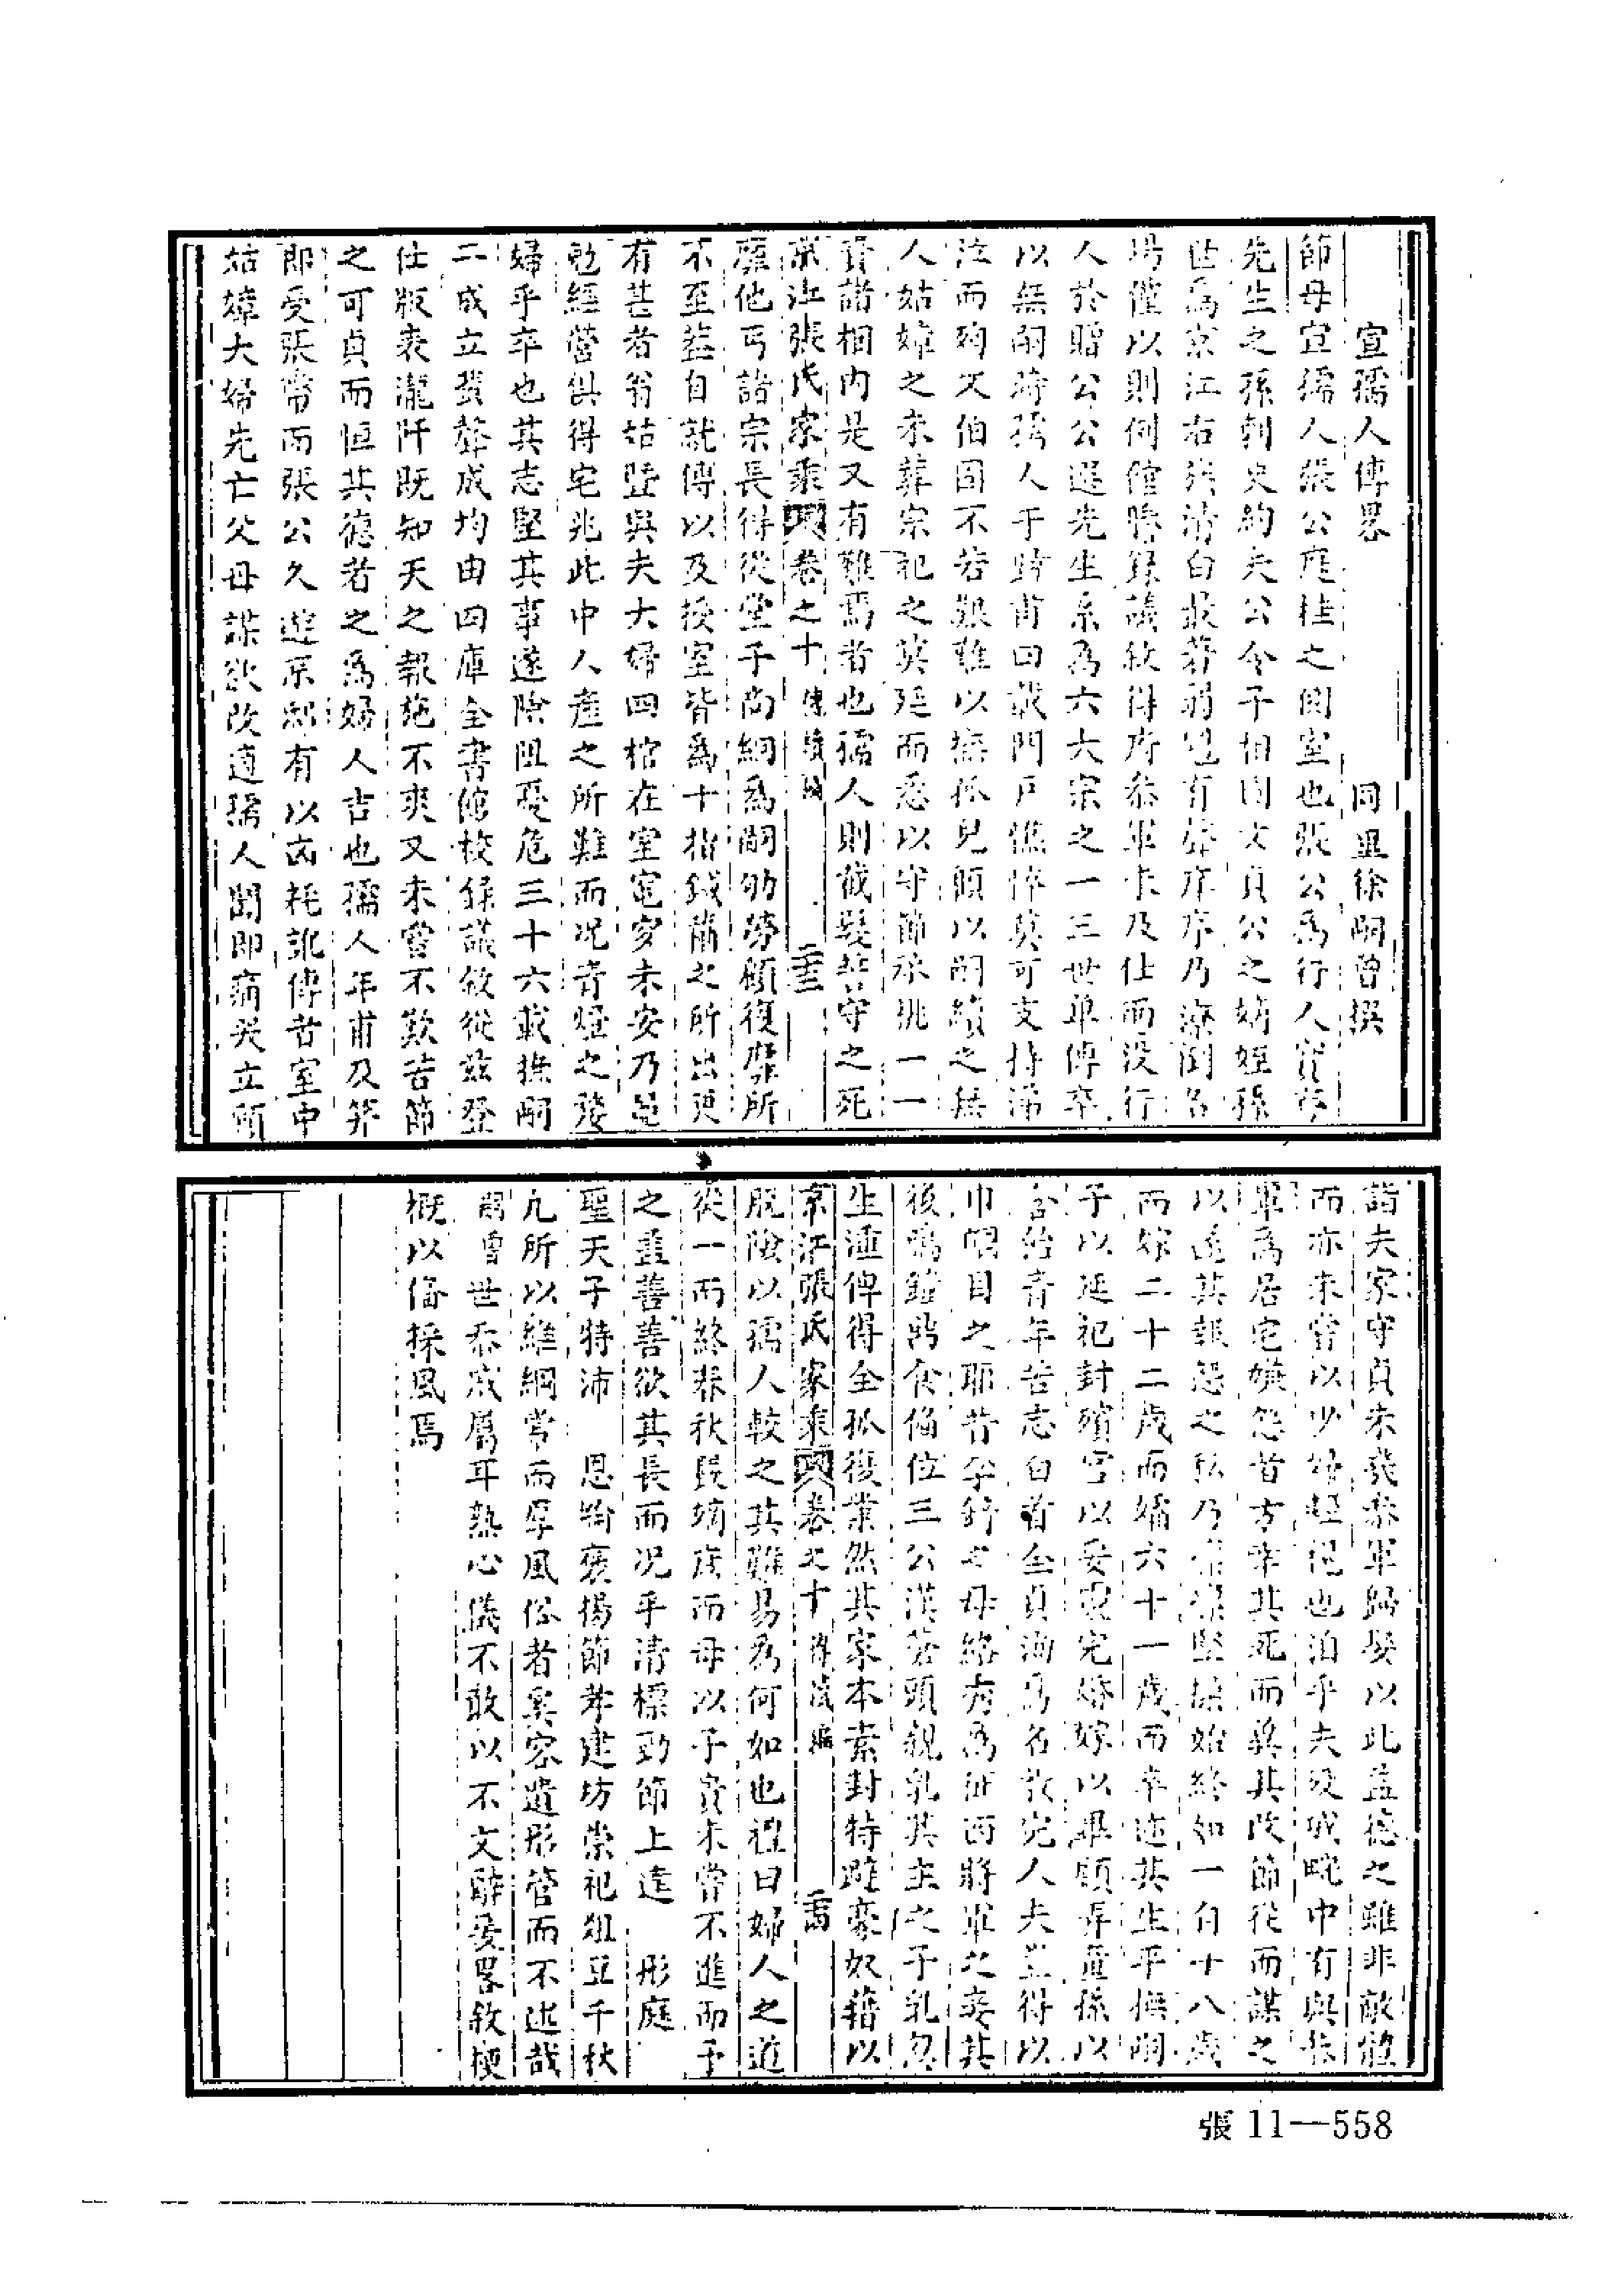 宣孺人傳畧
同里徐嗣曾撰
節母宣孺人張公庭桂之側室也張公爲行人寳
先生之孫刺史鈞夫公令子相國文貞公之嫡姪孫
世爲京江右族清白最著弱冠有聲庠序乃潦倒名
場僅以則例館謄錄議敘得府參軍未及仕而没行
人於贈公公選先生系爲六大宗之一三世單傳卒
以無嗣時孺人于歸甫曰載門戶憔悴莫可支持涕
泣而殉又伯固不若艱難以撫孤兒願以嗣續之無
人姑嫜之未葬宗祀之莫延而悉以守節承祧一一
責諸相内是又有難焉者也孺人則截髮苦守之死
京江張氏家乘 卷之十 傳續編 三十三
靡他丐諸宗長得從堂子尚絅爲嗣劬勞顧復靡所
不至茲自就傅以及授室皆爲十指鍼黹之所出更
有甚者翁姑曁與夫大婦四棺在室窀穸未安乃黽
勉經營俱得宅兆此中人產之所難而况青嫠之嫠
婦乎卒也其志堅其事遂險阻憂危三十六載撫嗣
二成立蜚聲成均由四庫全書館校錄議敘從茲登
仕版表瀧阡既知天之報施不爽又未嘗不歎苦節
之可貞而恒其德者之爲婦人吉也孺人年甫及笄
即受張幣而張公久遊京都有以凶耗訛傳者室中
姑嫜大婦先亡父母謀欲改適孺人聞即痛哭立願
詣夫家守貞未幾叅軍歸娶以此益德之雖非敵體
而亦未嘗以少婦輕之也洎乎夫没城畔中有與叅
軍爲居宅嫌怨者方幸其死而冀其改節從而謀之
以逞其報怨之私乃 堅操始終如一自十八歲
而嫁二十二歲而孀六十一歲而卒迹其生平撫嗣
子以延祀封殯宮以妥靈完婚嫁以畢願弄童孫以
含飴青年苦志白首全貞 爲名敎完人夫豈得以
巾幗目之耶昔 之母 爲征西將軍之妾其
後 食備位三公漢蒼頭親乳其主之子乳忽
生湩俾得全孤復業然其家本素封特蹤豪奴藉以
京江張氏家乘 卷之十 傳續編 三十四
脫險以孺人較之其難易爲何如也禮曰婦人之道
從一而終春秋嚴嫡庶而母以子貴未嘗不進而予
之盖善善欲其長而况乎清標勁節上達 彤庭
聖天子特沛 恩綸褒揚節孝建坊崇祀俎豆千秋
凡所以維綱常而厚風俗者奚容遺彤管而不述哉
嗣曾世忝戚属耳熱心儀不敢以不文辭爰畧敘梗
概以備採風焉
張 11—558